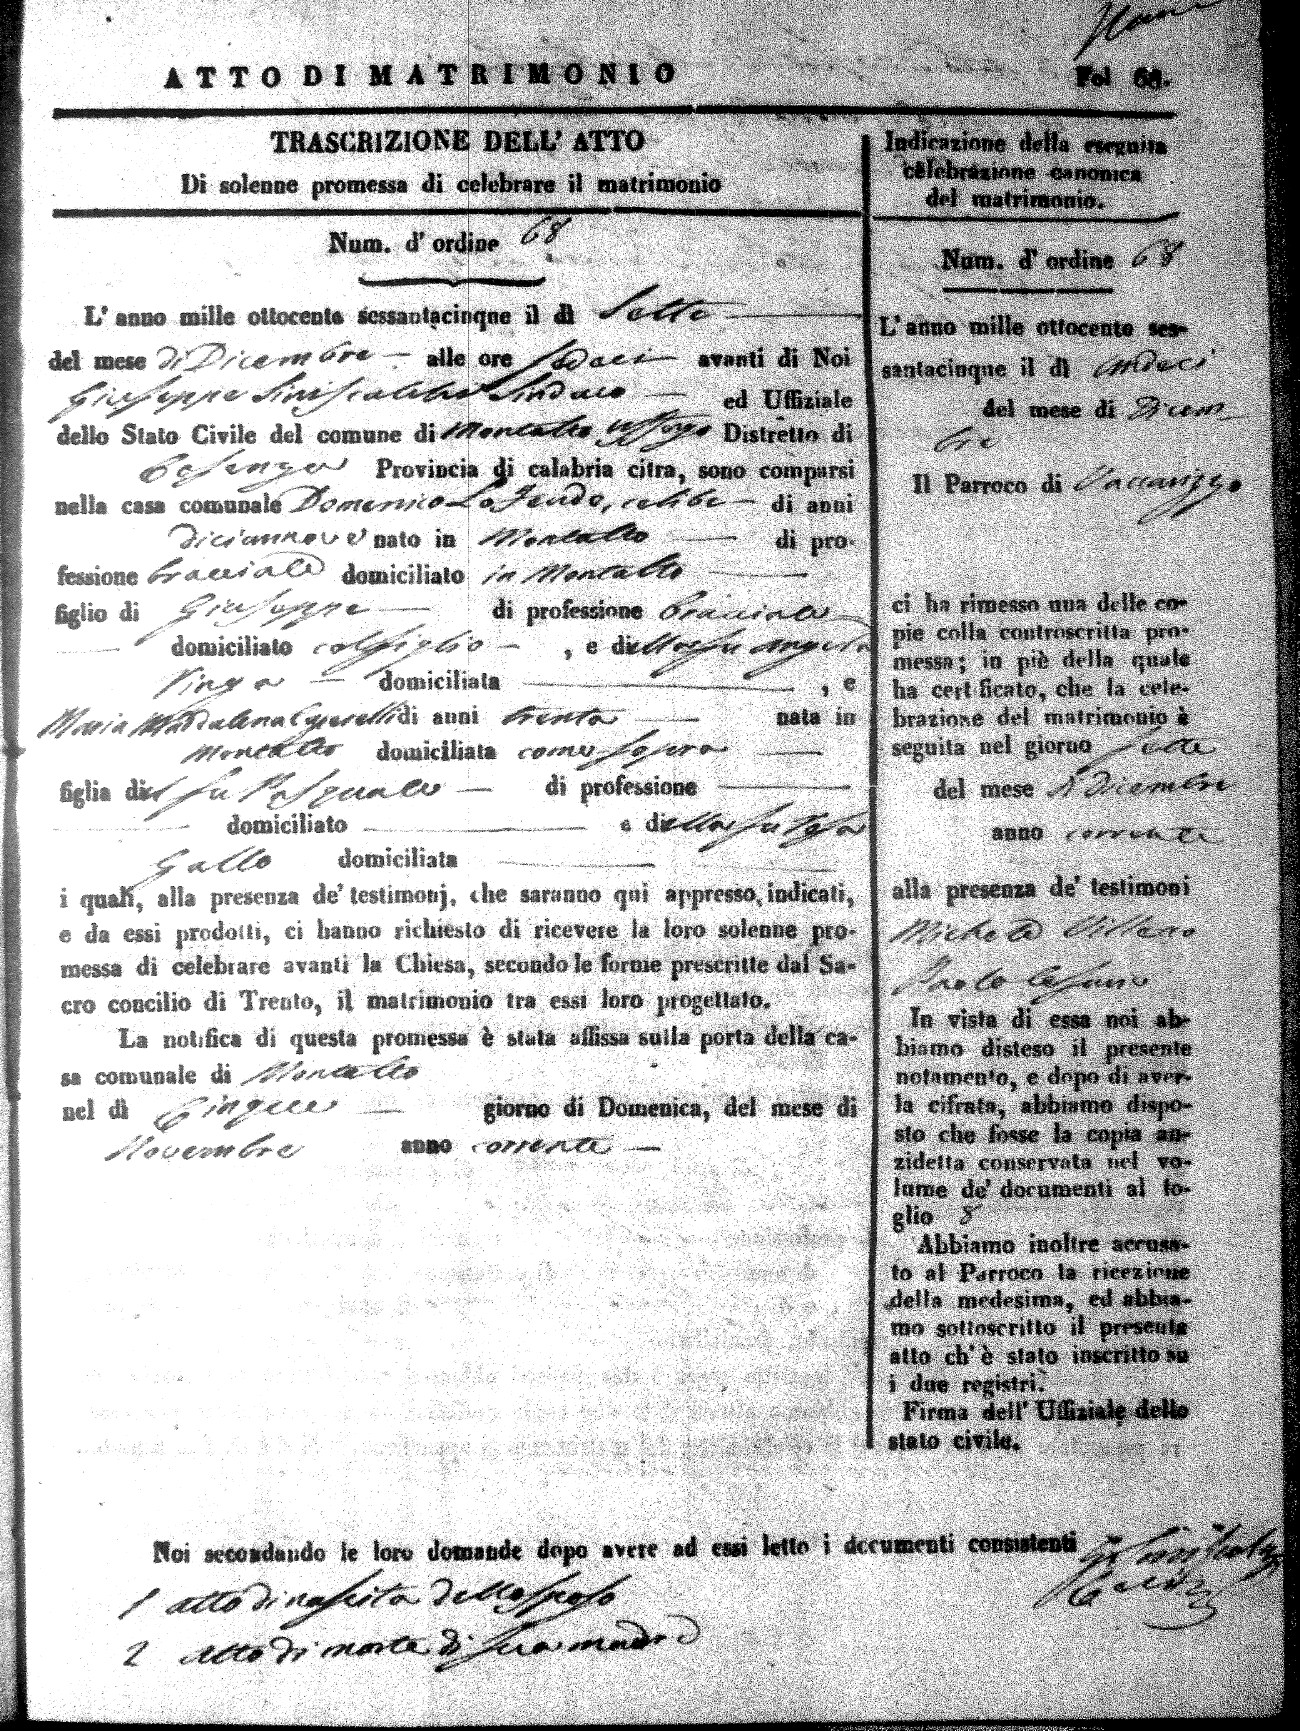 ATTO DI MATRIMONIO
Fol 68.
TRASCRIZIONE DELL' ATTO
Di solenne promessa di celebrare il matrimonio
Num. d' ordine 68
L' anno mille ottocento sessantacinque il dì Sette
del mese di Dicembre alle ore avanti di Noi
Giuseppe Siniscalchi Sindaco ed Uffiziale
dello Stato Civile del comune di Montalto Uffugo Distretto di
Cosenza Provincia di calabria citra, sono comparsi
nella casa comunale Domenico Lo Feudo, celibe di anni
diciannove nato in Montalto di pro-
fessione bracciale domiciliato in Montalto
figlio di Giuseppe di professione bracciale
domiciliato col figlio , e di della fu Angela
domiciliata , e
Maria Maddalena di anni trenta nata in
Montalto domiciliata come sopra
figlia di del fu Pasquale di professione
domiciliato e di della fu Rosa
Gallo domiciliata
i quali, alla presenza de' testimonj, che saranno qui appresso indicati,
e da essi prodotti, ci hanno richiesto di ricevere la loro solenne pro-
messa di celebrare avanti la Chiesa, secondo le forme prescritte dal Sa-
cro concilio di Trento, il matrimonio tra essi loro progettato.
La notifica di questa promessa è stata affissa sulla porta della ca-
sa comunale di Montalto
nel dì Cinque giorno di Domenica, del mese di
Novembre anno corrente
Indicazione della eseguita
celebrazione canonica
del matrimonio.
Num. d' ordine 68
L' anno mille ottocento ses-
santacinque il dì undeci
del mese di Dicem
bre
Il Parroco di Vaccarizzo
ci ha rimesso una delle co-
pie colla controscritta pro-
messa; in piè della quale
ha certificato, che la cele-
brazione del matrimonio è
seguita nel giorno sette
del mese di Dicembre
anno corrente
alla presenza de' testimoni
Michele Villano
Paolo Cesario
In vista di essa noi ab-
biamo disteso il presente
notamento, e dopo di aver-
la cifrata, abbiamo dispo-
sto che fosse la copia an-
zidetta conservata nel vo-
lume de' documenti al fo-
glio 8
Abbiamo inoltre accusa-
to al Parroco la ricezione
della medesima, ed abbia-
mo sottoscritto il presente
atto ch' è stato inscritto su
i due registri.
Firma dell' Uffiziale dello
stato civile.
Noi secondando le loro domande dopo avere ad essi letto i documenti consistenti
1 atto di nascita dello sposo
2 atto di morte di sua madre